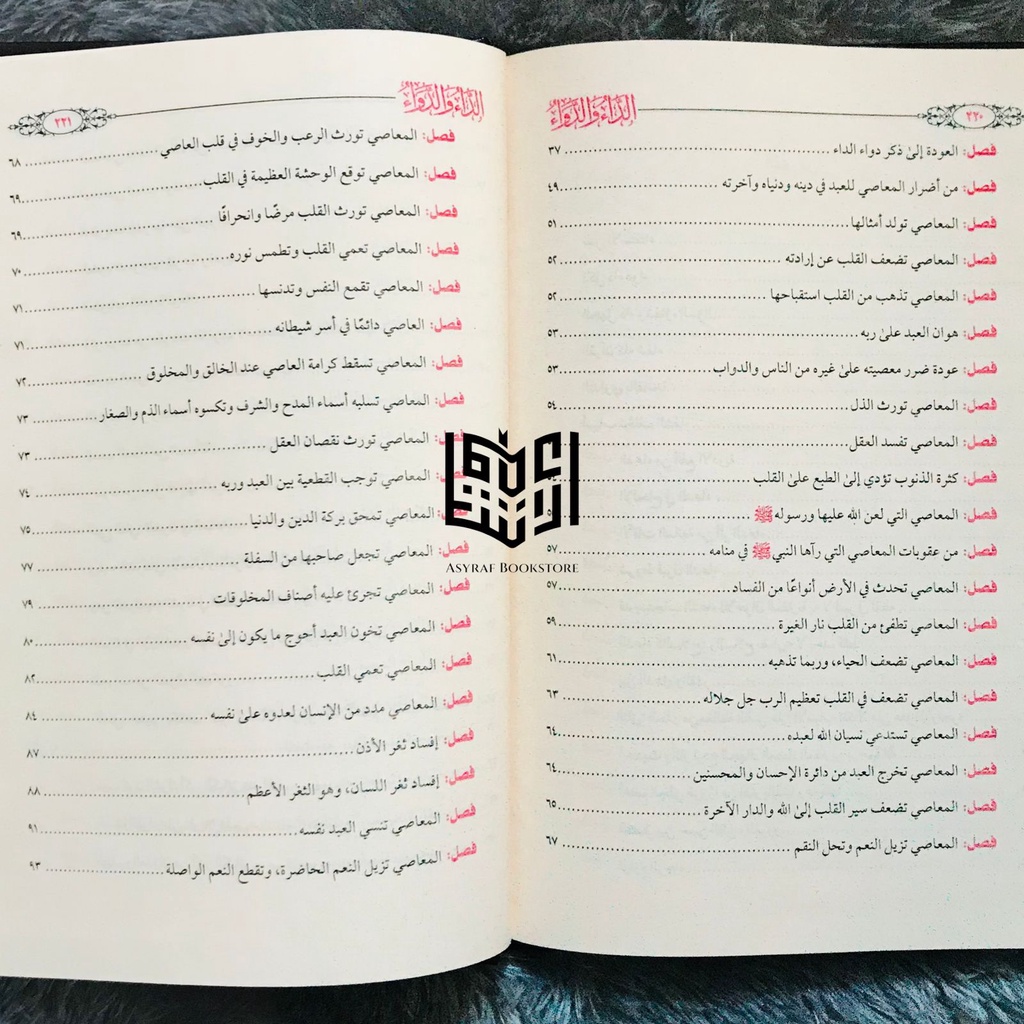 ٢٢٠
الداء والدواء
فصل: العودة إلى ذكر دواء الداء ٣٧
فصل: من أضرار المعاصي للعبد في دينه ودنياه وآخرته ٤٩
فصل: المعاصي تولد أمثالها ٥١
فصل: المعاصي تضعف القلب عن إرادته ٥٢
فصل: المعاصي تذهب من القلب استقباحها ٥٢
فصل: هوان العبد على ربه ٥٣
فصل: عودة ضرر معصيته على غيره من الناس والدواب ٥٣
فصل: المعاصي تورث الذل ٥٤
فصل: المعاصي تفسد العقل
فصل: كثرة الذنوب تؤدي إلى الطبع على القلب
فصل: المعاصي التي لعن الله عليها ورسوله ﷺ
فصل: من عقوبات المعاصي التي رآها النبي ﷺ في منامه ٥٧
فصل: المعاصي تحدث في الأرض أنواعًا من الفساد ٥٧
فصل: المعاصي تطفئ من القلب نار الغيرة ٥٩
فصل: المعاصي تضعف الحياء، وربما تذهبه ٦١
فصل: المعاصي تضعف في القلب تعظيم الرب جل جلاله ٦٣
فصل: المعاصي تستدعي نسيان الله لعبده ٦٤
فصل: المعاصي تخرج العبد من دائرة الإحسان والمحسنين ٦٤
فصل: المعاصي تضعف سير القلب إلى الله والدار الآخرة ٦٥
فصل: المعاصي تزيل النعم وتحل النقم ٦٧
الداء والدواء
٢٢١
فصل: المعاصي تورث الرعب والخوف في قلب العاصي ٦٨
فصل: المعاصي توقع الوحشة العظيمة في القلب ٦٩
فصل: المعاصي تورث القلب مرضًا وانحرافًا ٦٩
فصل: المعاصي تعمي القلب وتطمس نوره ٧٠
فصل: المعاصي تقمع النفس وتدنسها ٧١
فصل: العاصي دائمًا في أسر شيطانه ٧١
فصل: المعاصي تسقط كرامة العاصي عند الخالق والمخلوق ٧٢
فصل: المعاصي تسلبه أسماء المدح والشرف وتكسوه أسماء الذم والصغار ٧٣
فصل: المعاصي تورث نقصان العقل ٧٣
فصل: المعاصي توجب القطعية بين العبد وربه ٧٤
فصل: المعاصي تمحق بركة الدين والدنيا ٧٥
فصل: المعاصي تجعل صاحبها من السفلة ٧٧
فصل: المعاصي تجرئ عليه أصناف المخلوقات ٧٩
فصل: المعاصي تخون العبد أحوج ما يكون إلى نفسه ٨٠
فصل: المعاصي تعمي القلب ٨٢
فصل: المعاصي مدد من الإنسان لعدوه على نفسه ٨٤
فصل: إفساد ثغر الأذن ٨٧
فصل: إفساد ثغر اللسان، وهو الثغر الأعظم ٨٨
فصل: المعاصي تنسي العبد نفسه ٩١
فصل: المعاصي تزيل النعم الحاضرة، وتقطع النعم الواصلة ٩٣
ASYRAF BOOKSTORE